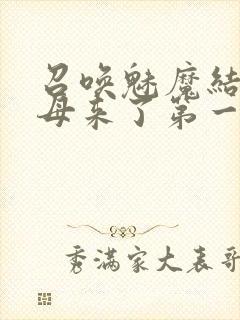 召唤魅魔结
母来了第一
秀满家大表哥